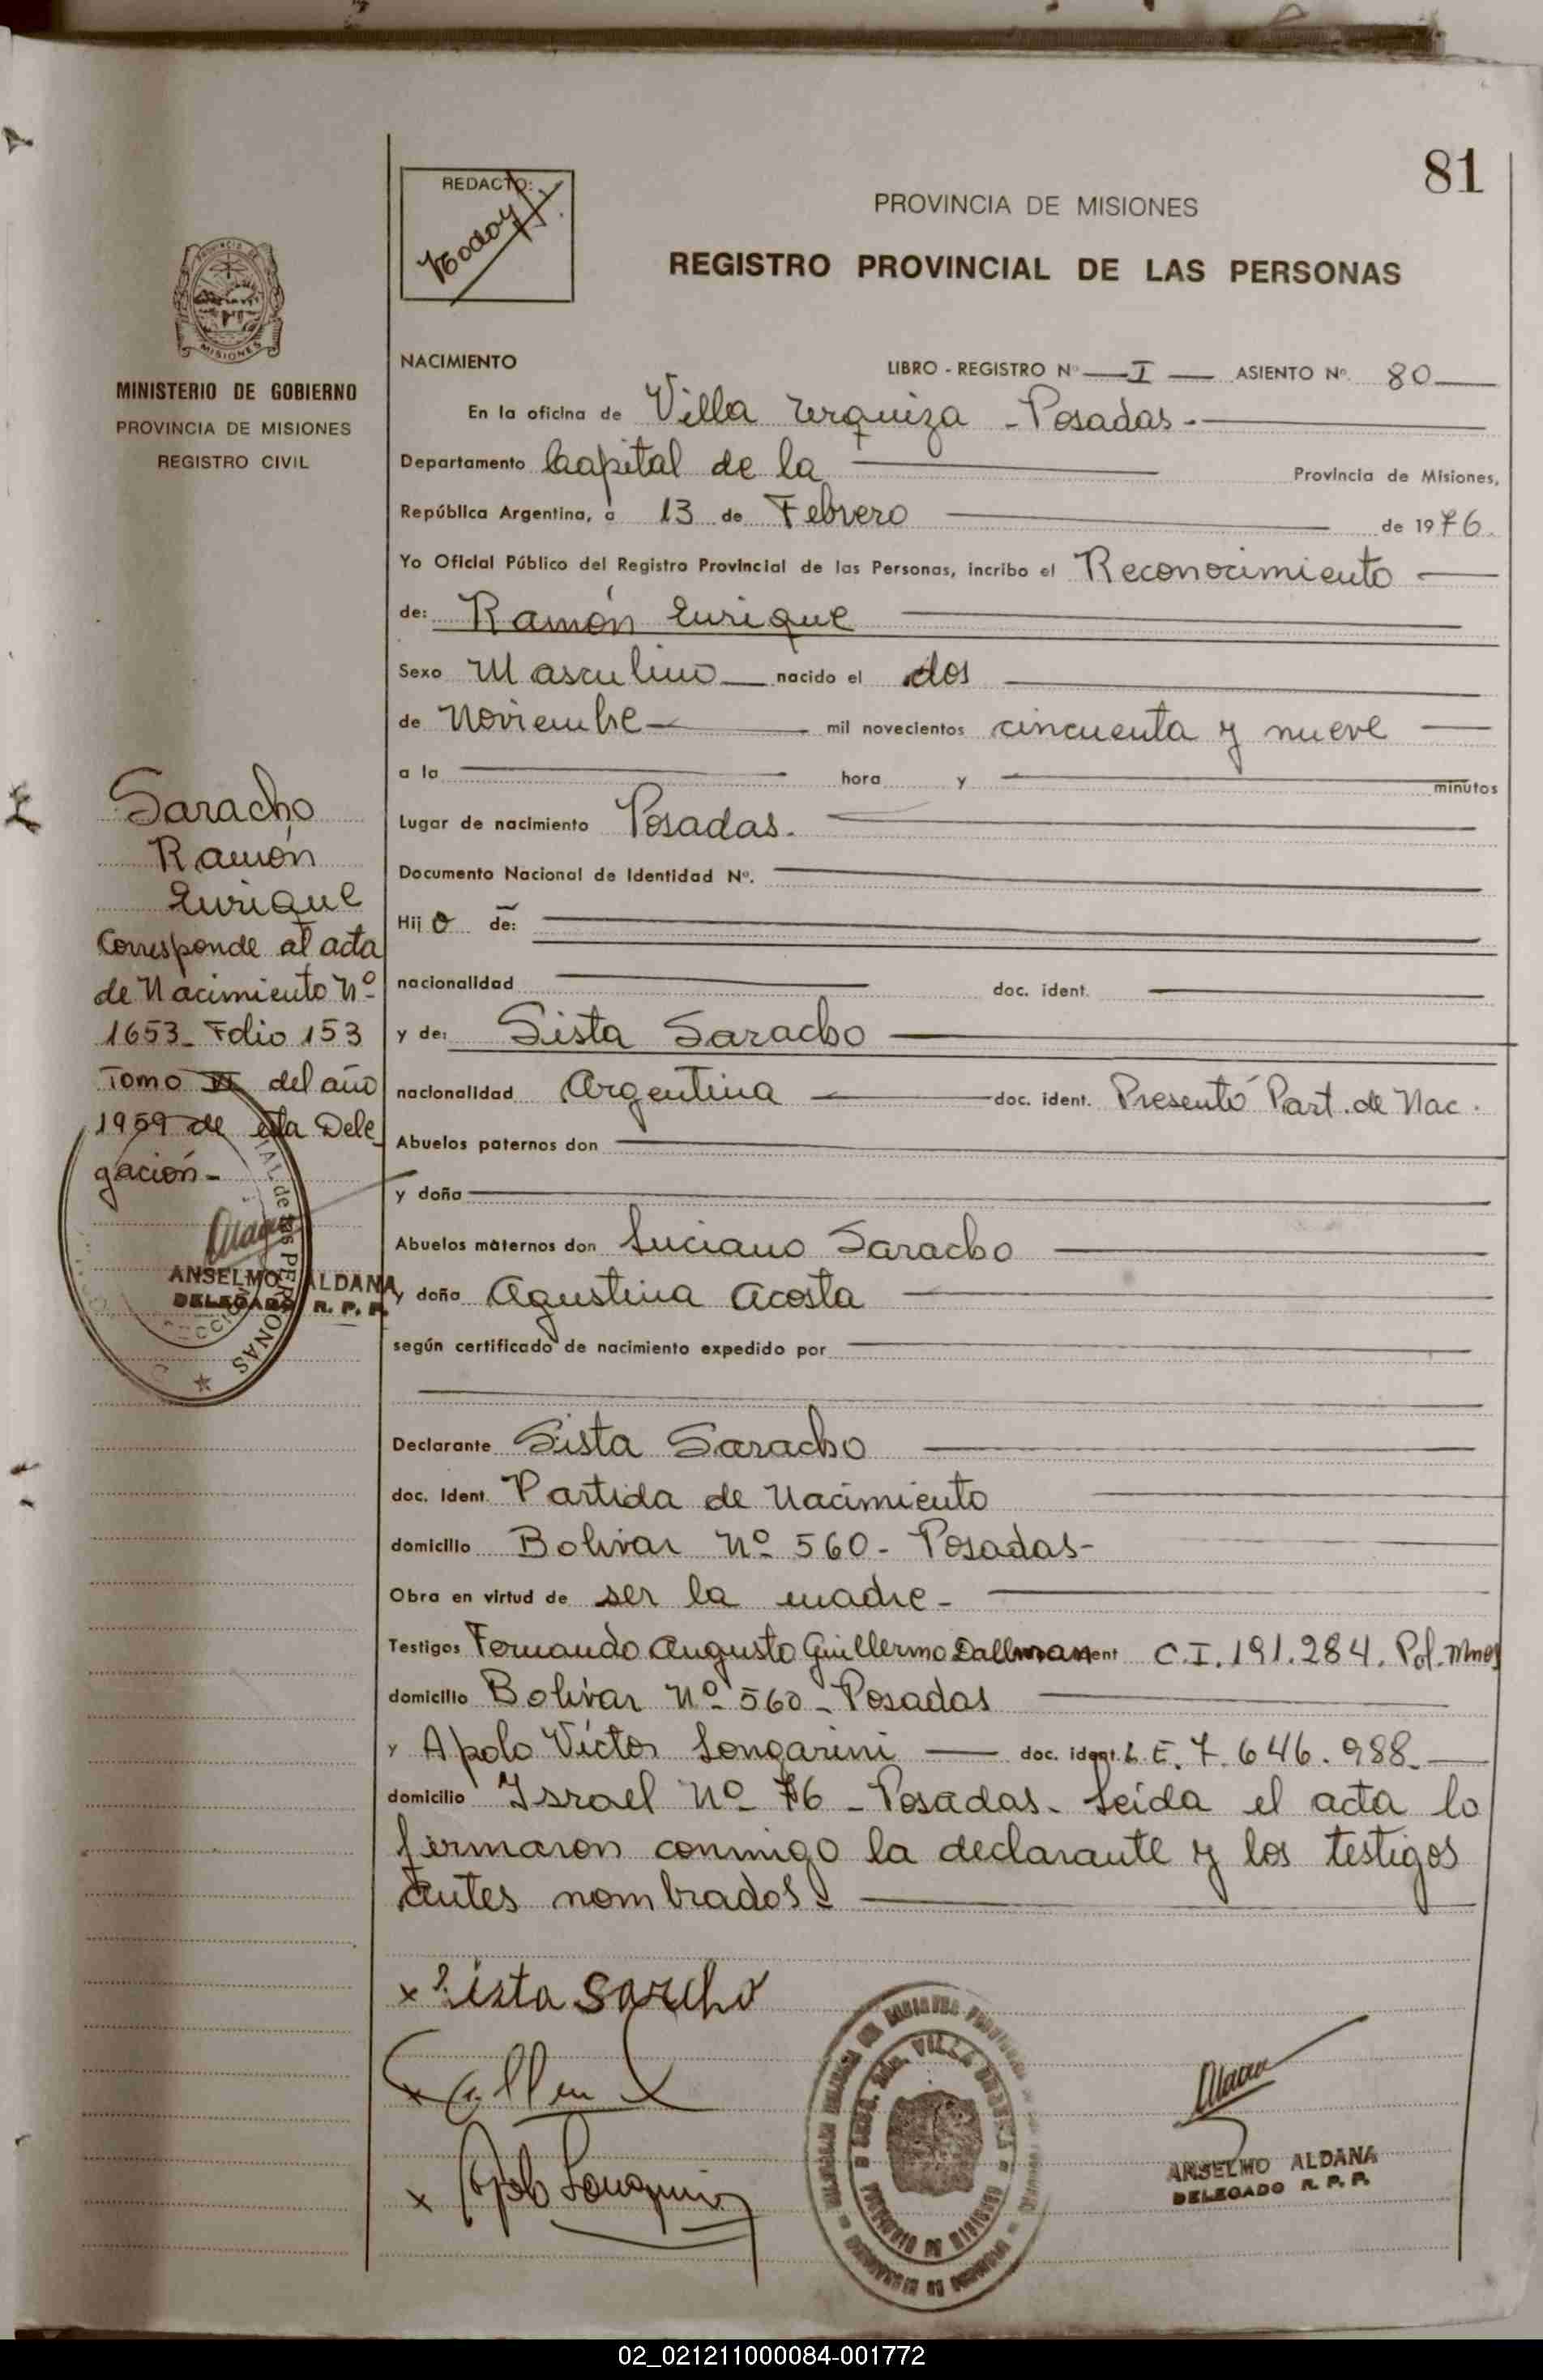 81
REDACTO:
PROVINCIA DE MISIONES
REGISTRO PROVINCIAL DE LAS PERSONAS
MISIONES
MINISTERIO DE GOBIERNO
PROVINCIA DE MISIONES
REGISTRO CIVIL
NACIMIENTO
LIBRO - REGISTRO Nº I ASIENTO Nº. 80
En la oficina de Villa Urquiza - Posadas -
Departamento Capital de la Provincia de Misiones,
República Argentina, a 13 de Febrero de 1976.
Yo Oficial Público del Registro Provincial de las Personas, incribo el Reconocimiento
de: Ramón Enrique
Sexo Masculino nacido el dos
de Noviembre mil novecientos cincuenta y nueve
a la hora y minutos
Lugar de nacimiento Posadas.
Documento Nacional de Identidad Nº.
Hijo de:
nacionalidad doc. ident.
y de: Sista Saracho
nacionalidad Argentina doc. ident. Presentó Part. de Nac.
Abuelos paternos don
y doña
Abuelos maternos don Luciano Saracho
y doña Agustina Acosta
según certificado de nacimiento expedido por
Declarante Sista Saracho
doc. Ident. Partida de Nacimiento
domicilio Bolivar Nº 560 - Posadas -
Obra en virtud de ser la madre -
Testigos Fernando Augusto Guillermo Dallman ent C.I. 191.284. Pol. Mnes
domicilio Bolivar Nº 560 - Posadas
y Apolo Víctor Longarini doc. ident. L.E. 7.646.988.
domicilio Israel Nº 76 - Posadas. Leída el acta lo
firmaron conmigo la declarante y los testigos
antes nombrados.
Saracho
Ramón
Enrique
Corresponde al acta
de Nacimiento Nº
1653 - Folio 153
Tomo del año
1959 de esta Dele
gación -
ANSELMO ALDANA
DELEGADO R. P. P.
x Sista Sarcho
x
x Apolo Longarini
ANSELMO ALDANA
DELEGADO R. P. P.
02_021211000084-001772